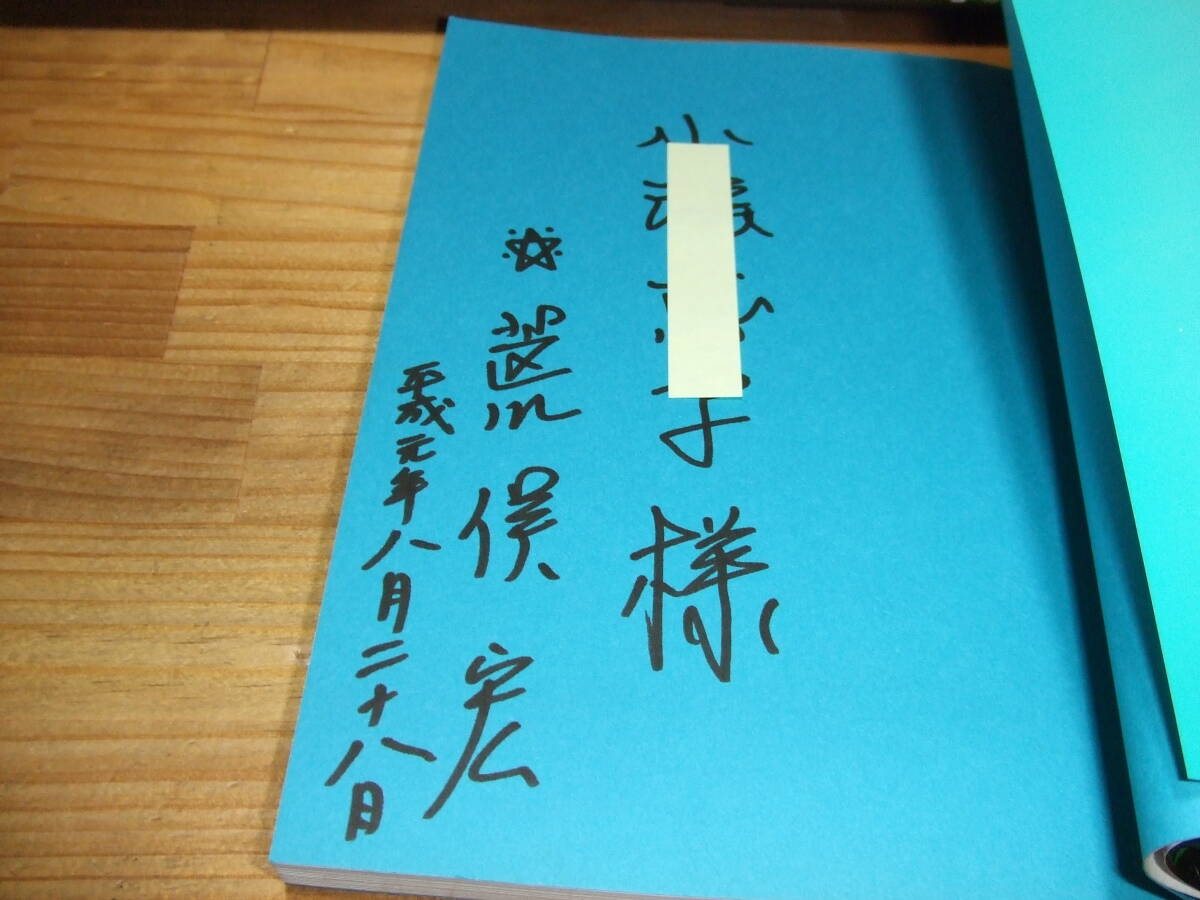 小
子様
荒俣宏
平成元年八月二十八日